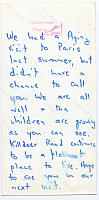 We had a flying
visit to Paris
last summer, but
didn't have a
chance to call
you. We are all
well. The
children are growing
as you can see.
Killdeer Road continues
to be a pleasant
place to live. Hope
to see you on our
next visit.